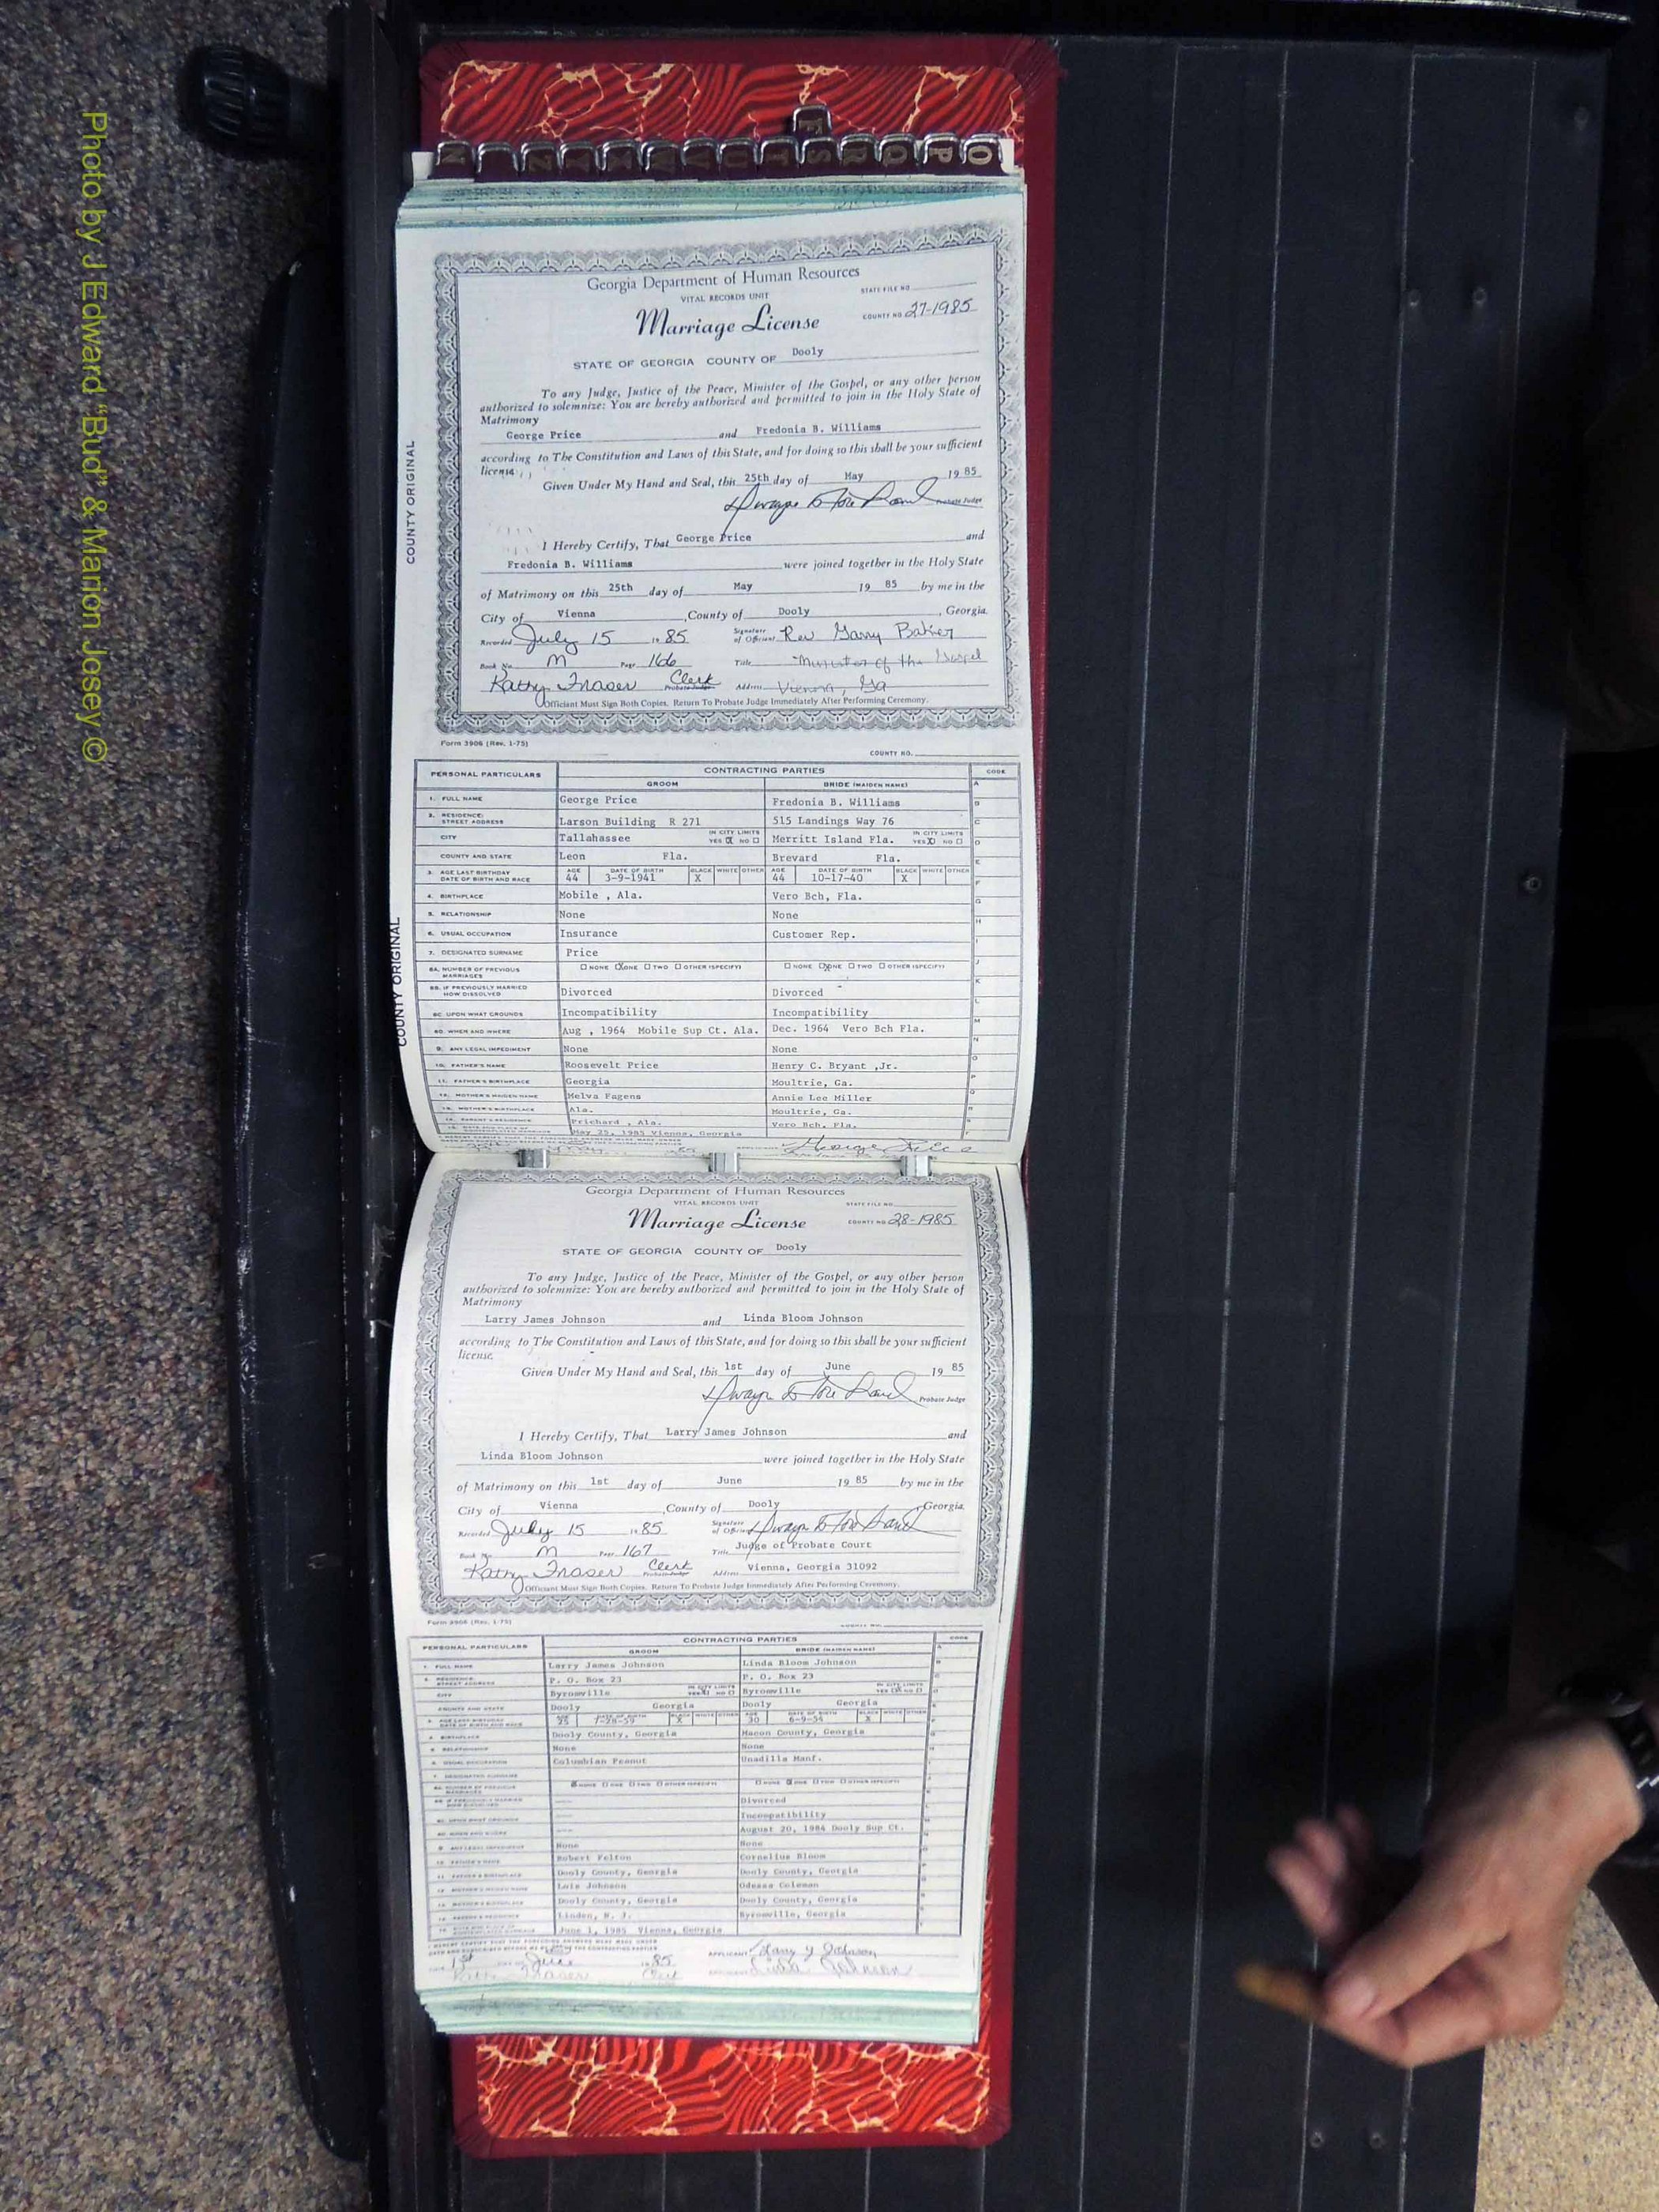 Photo by J Edward "Bud" & Marion Josey ©
N Z Y X W V U T S R Q P O
F
Georgia Department of Human Resources
VITAL RECORDS UNIT
STATE FILE NO.
Marriage License
COUNTY NO. 27-1985
STATE OF GEORGIA COUNTY OF Dooly
To any Judge, Justice of the Peace, Minister of the Gospel, or any other person
authorized to solemnize: You are hereby authorized and permitted to join in the Holy State of
Matrimony
George Price and Fredonia B. Williams
according to The Constitution and Laws of this State, and for doing so this shall be your sufficient
license.
Given Under My Hand and Seal, this 25th day of May 19 85
Probate Judge
I Hereby Certify, That George Price and
Fredonia B. Williams were joined together in the Holy State
of Matrimony on this 25th day of May 19 85 by me in the
City of Vienna, County of Dooly, Georgia.
Recorded July 15 19 85 Signature of Officiant Rev Garry Baker
Book No. M Page 166 Title Minister of the Gospel
Kathy Fraser Clerk Probate Judge Address Vienna, Ga
Officiant Must Sign Both Copies. Return To Probate Judge Immediately After Performing Ceremony.
COUNTY ORIGINAL
Form 3906 (Rev. 1-75)
COUNTY NO.
PERSONAL PARTICULARS CONTRACTING PARTIES CODE
GROOM BRIDE (MAIDEN NAME)
1. FULL NAME George Price Fredonia B. Williams
2. RESIDENCE: STREET ADDRESS Larson Building R 271 515 Landings Way 76
CITY Tallahassee IN CITY LIMITS YES X NO Merritt Island Fla. IN CITY LIMITS YES X NO
COUNTY AND STATE Leon Fla. Brevard Fla.
3. AGE LAST BIRTHDAY DATE OF BIRTH AND RACE AGE 44 DATE OF BIRTH 3-9-1941 BLACK X WHITE OTHER AGE 44 DATE OF BIRTH 10-17-40 BLACK X WHITE OTHER
4. BIRTHPLACE Mobile , Ala. Vero Bch, Fla.
5. RELATIONSHIP None None
6. USUAL OCCUPATION Insurance Customer Rep.
7. DESIGNATED SURNAME Price
8A. NUMBER OF PREVIOUS MARRIAGES NONE X ONE TWO OTHER (SPECIFY) NONE X ONE TWO OTHER (SPECIFY)
8B. IF PREVIOUSLY MARRIED HOW DISSOLVED Divorced Divorced
8C. UPON WHAT GROUNDS Incompatibility Incompatibility
8D. WHEN AND WHERE Aug , 1964 Mobile Sup Ct. Ala. Dec. 1964 Vero Bch Fla.
9. ANY LEGAL IMPEDIMENT None None
10. FATHER'S NAME Roosevelt Price Henry C. Bryant ,Jr.
11. FATHER'S BIRTHPLACE Georgia Moultrie, Ga.
12. MOTHER'S MAIDEN NAME Melva Fagens Annie Lee Miller
13. MOTHER'S BIRTHPLACE Ala. Moultrie, Ga.
14. PARENT'S RESIDENCE Prichard , Ala. Vero Bch, Fla.
May 25, 1985 Vienna, Georgia
George Price
COUNTY ORIGINAL
Georgia Department of Human Resources
VITAL RECORDS UNIT
STATE FILE NO.
Marriage License
COUNTY NO. 28-1985
STATE OF GEORGIA COUNTY OF Dooly
To any Judge, Justice of the Peace, Minister of the Gospel, or any other person
authorized to solemnize: You are hereby authorized and permitted to join in the Holy State of
Matrimony
Larry James Johnson and Linda Bloom Johnson
according to The Constitution and Laws of this State, and for doing so this shall be your sufficient
license.
Given Under My Hand and Seal, this 1st day of June 19 85
Probate Judge
I Hereby Certify, That Larry James Johnson and
Linda Bloom Johnson were joined together in the Holy State
of Matrimony on this 1st day of June 19 85 by me in the
City of Vienna, County of Dooly Georgia.
Recorded July 15 19 85 Signature of Officiant
Book No. M Page 167 Title Judge of Probate Court
Kathy Fraser Clerk Probate Judge Address Vienna, Georgia 31092
Officiant Must Sign Both Copies. Return To Probate Judge Immediately After Performing Ceremony.
Form 3906 (Rev. 1-75)
PERSONAL PARTICULARS CONTRACTING PARTIES CODE
GROOM BRIDE (MAIDEN NAME)
1. FULL NAME Larry James Johnson Linda Bloom Johnson
P. O. Box 23 P. O. Box 23
CITY Byromville Byromville
COUNTY AND STATE Dooly Georgia Dooly Georgia
25 7-28-59 X 30 6-9-54 X
Dooly County, Georgia Macon County, Georgia
None None
Columbian Peanut Unadilla Manf.
NONE ONE TWO OTHER (SPECIFY) NONE ONE TWO OTHER (SPECIFY)
---- Divorced
---- Incompatibility
---- August 20, 1984 Dooly Sup Ct.
None None
Robert Felton Cornelius Bloom
Dooly County, Georgia Dooly County, Georgia
Lois Johnson Odessa Coleman
Dooly County, Georgia Dooly County, Georgia
Linden, N. J. Byromville, Georgia
June 1, 1985 Vienna, Georgia
APPLICANT Larry J Johnson
1st June 19 85
Kathy Fraser Clerk Linda Johnson